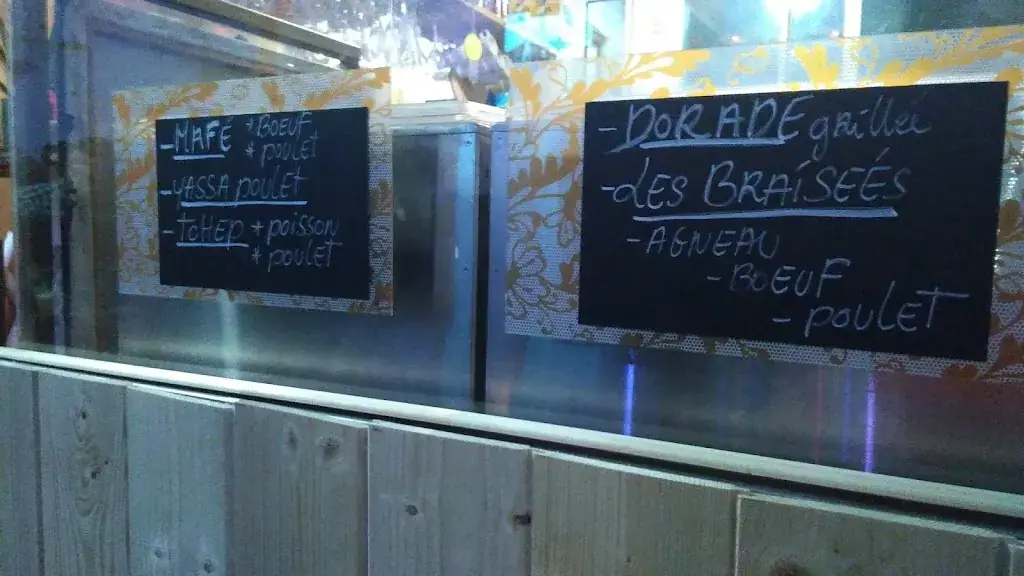 - MAFÉ * BOEUF
* poulet
- YASSA poulet
- TCHEP * poisson
* poulet
- DORADE grillée
- LES BRAISEÉS
- AGNEAU
- BOEUF
- POULET